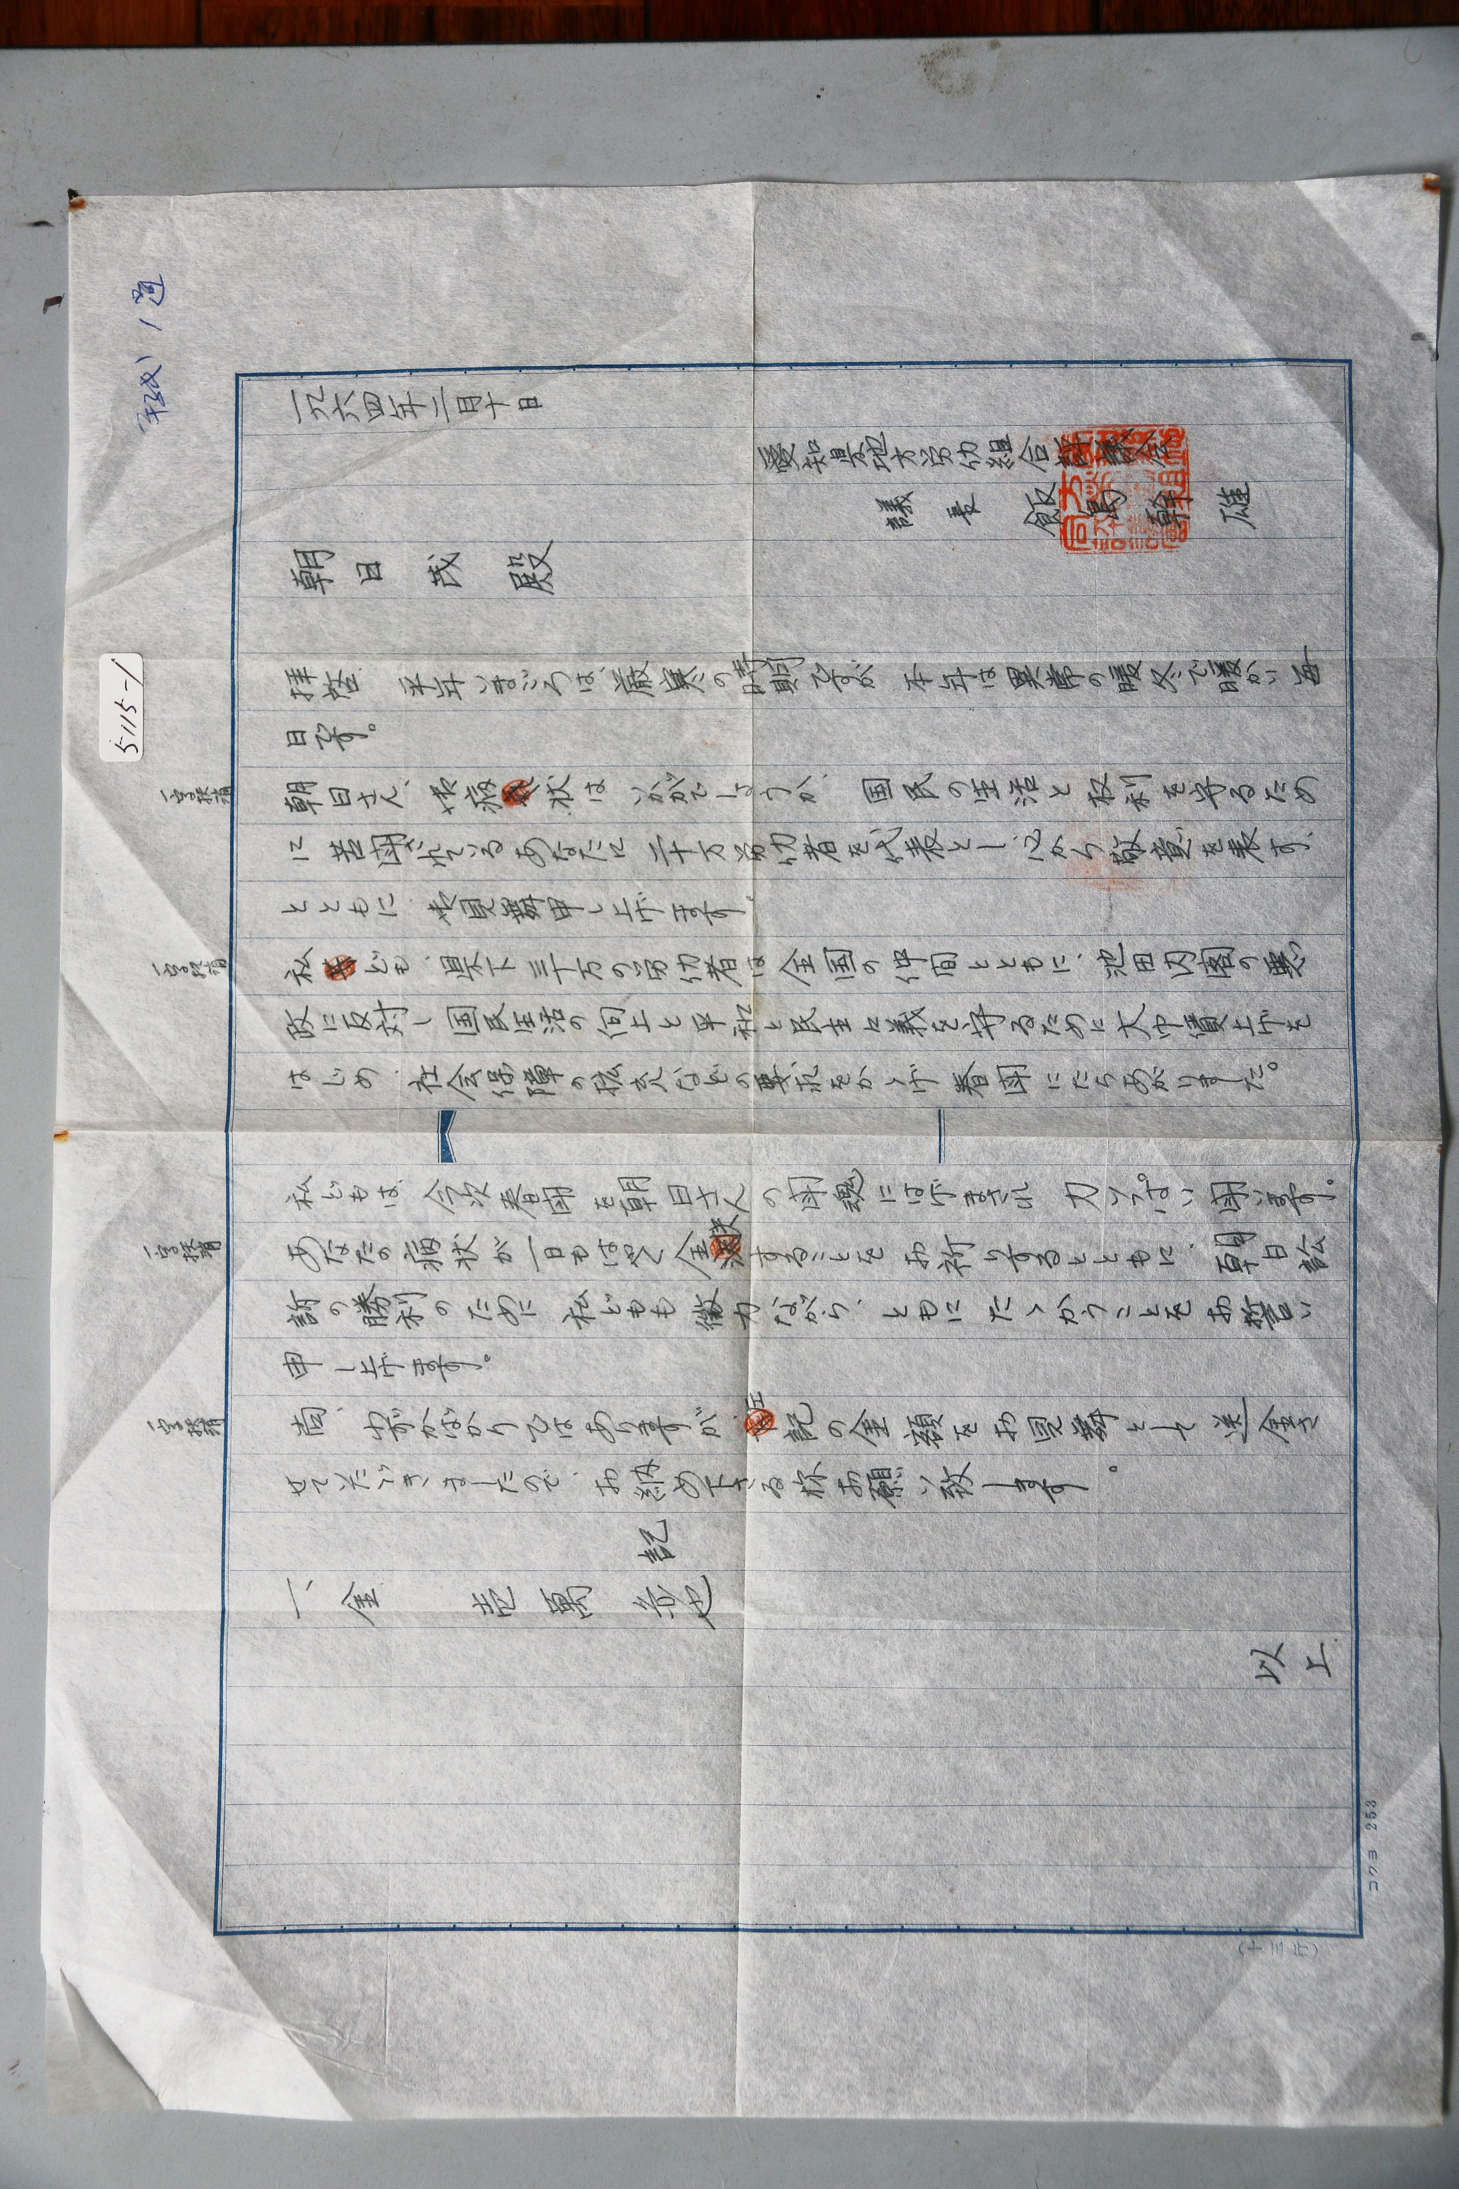 (封筒) 1通
5115-1
一九六四年二月十日
愛知県地方労仂組合評議会
議長 飯島幹雄
朝日茂殿
拝啓 平年いまごろは、厳寒の時期ですが、本年は異常の暖冬で暖かい毎
日です。
一字抹消
朝日さん、御病状はいかがでしょうか、国民の生活と权利を守るため
に苦闘されているあなたに三十万労仂者を代表し、心から敬意を表す、
とともにお見舞申し上げます。
一字抹消
私ども、県下三十万の労仂者は全国の仲間とともに、池田内閣の悪
政に反対し国民生活の向上と平和と民主々義を守るために大巾賃上げを
はじめ、社会保障の拡大などの要求をかゝげ春闘にたちあがりました。
私どもは、今次春闘を朝日さんの闘魂にはげまされ力いっぱい闘います。
一字抹消
あなたの病状が一日もはやく全快することをお祈りするとともに、朝日訟
訴の勝利のために私どもも微力ながら、ともにたゝかうことをお誓い
申し上げます。
一字抹消
尚、わずかばかりではありますが、左記の金額をお見舞として送金さ
せていたゞきましたので、お納め下さる様お願い致します。
記
一、金 壱萬円也
以上
コクヨ 253